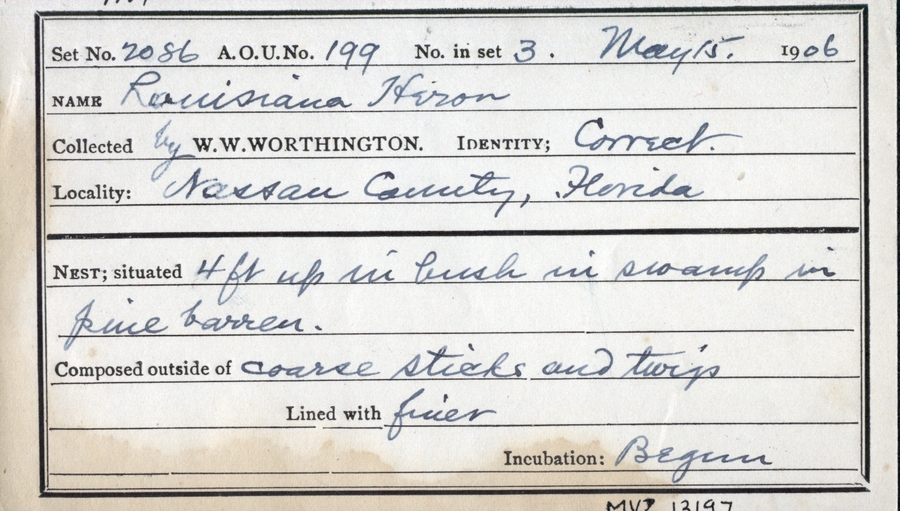 Set No. 2086 A.O.U.No. 199 No. in set 3. May 15. 1906
NAME Louisiana Heron
Collected by W.W.WORTHINGTON. IDENTITY; Correct.
Locality: Nassau County, Florida
NEST; situated 4 ft up in bush in swamp in
pine barren.
Composed outside of coarse sticks and twigs
Lined with finer
Incubation: Begun
MVZ 13197